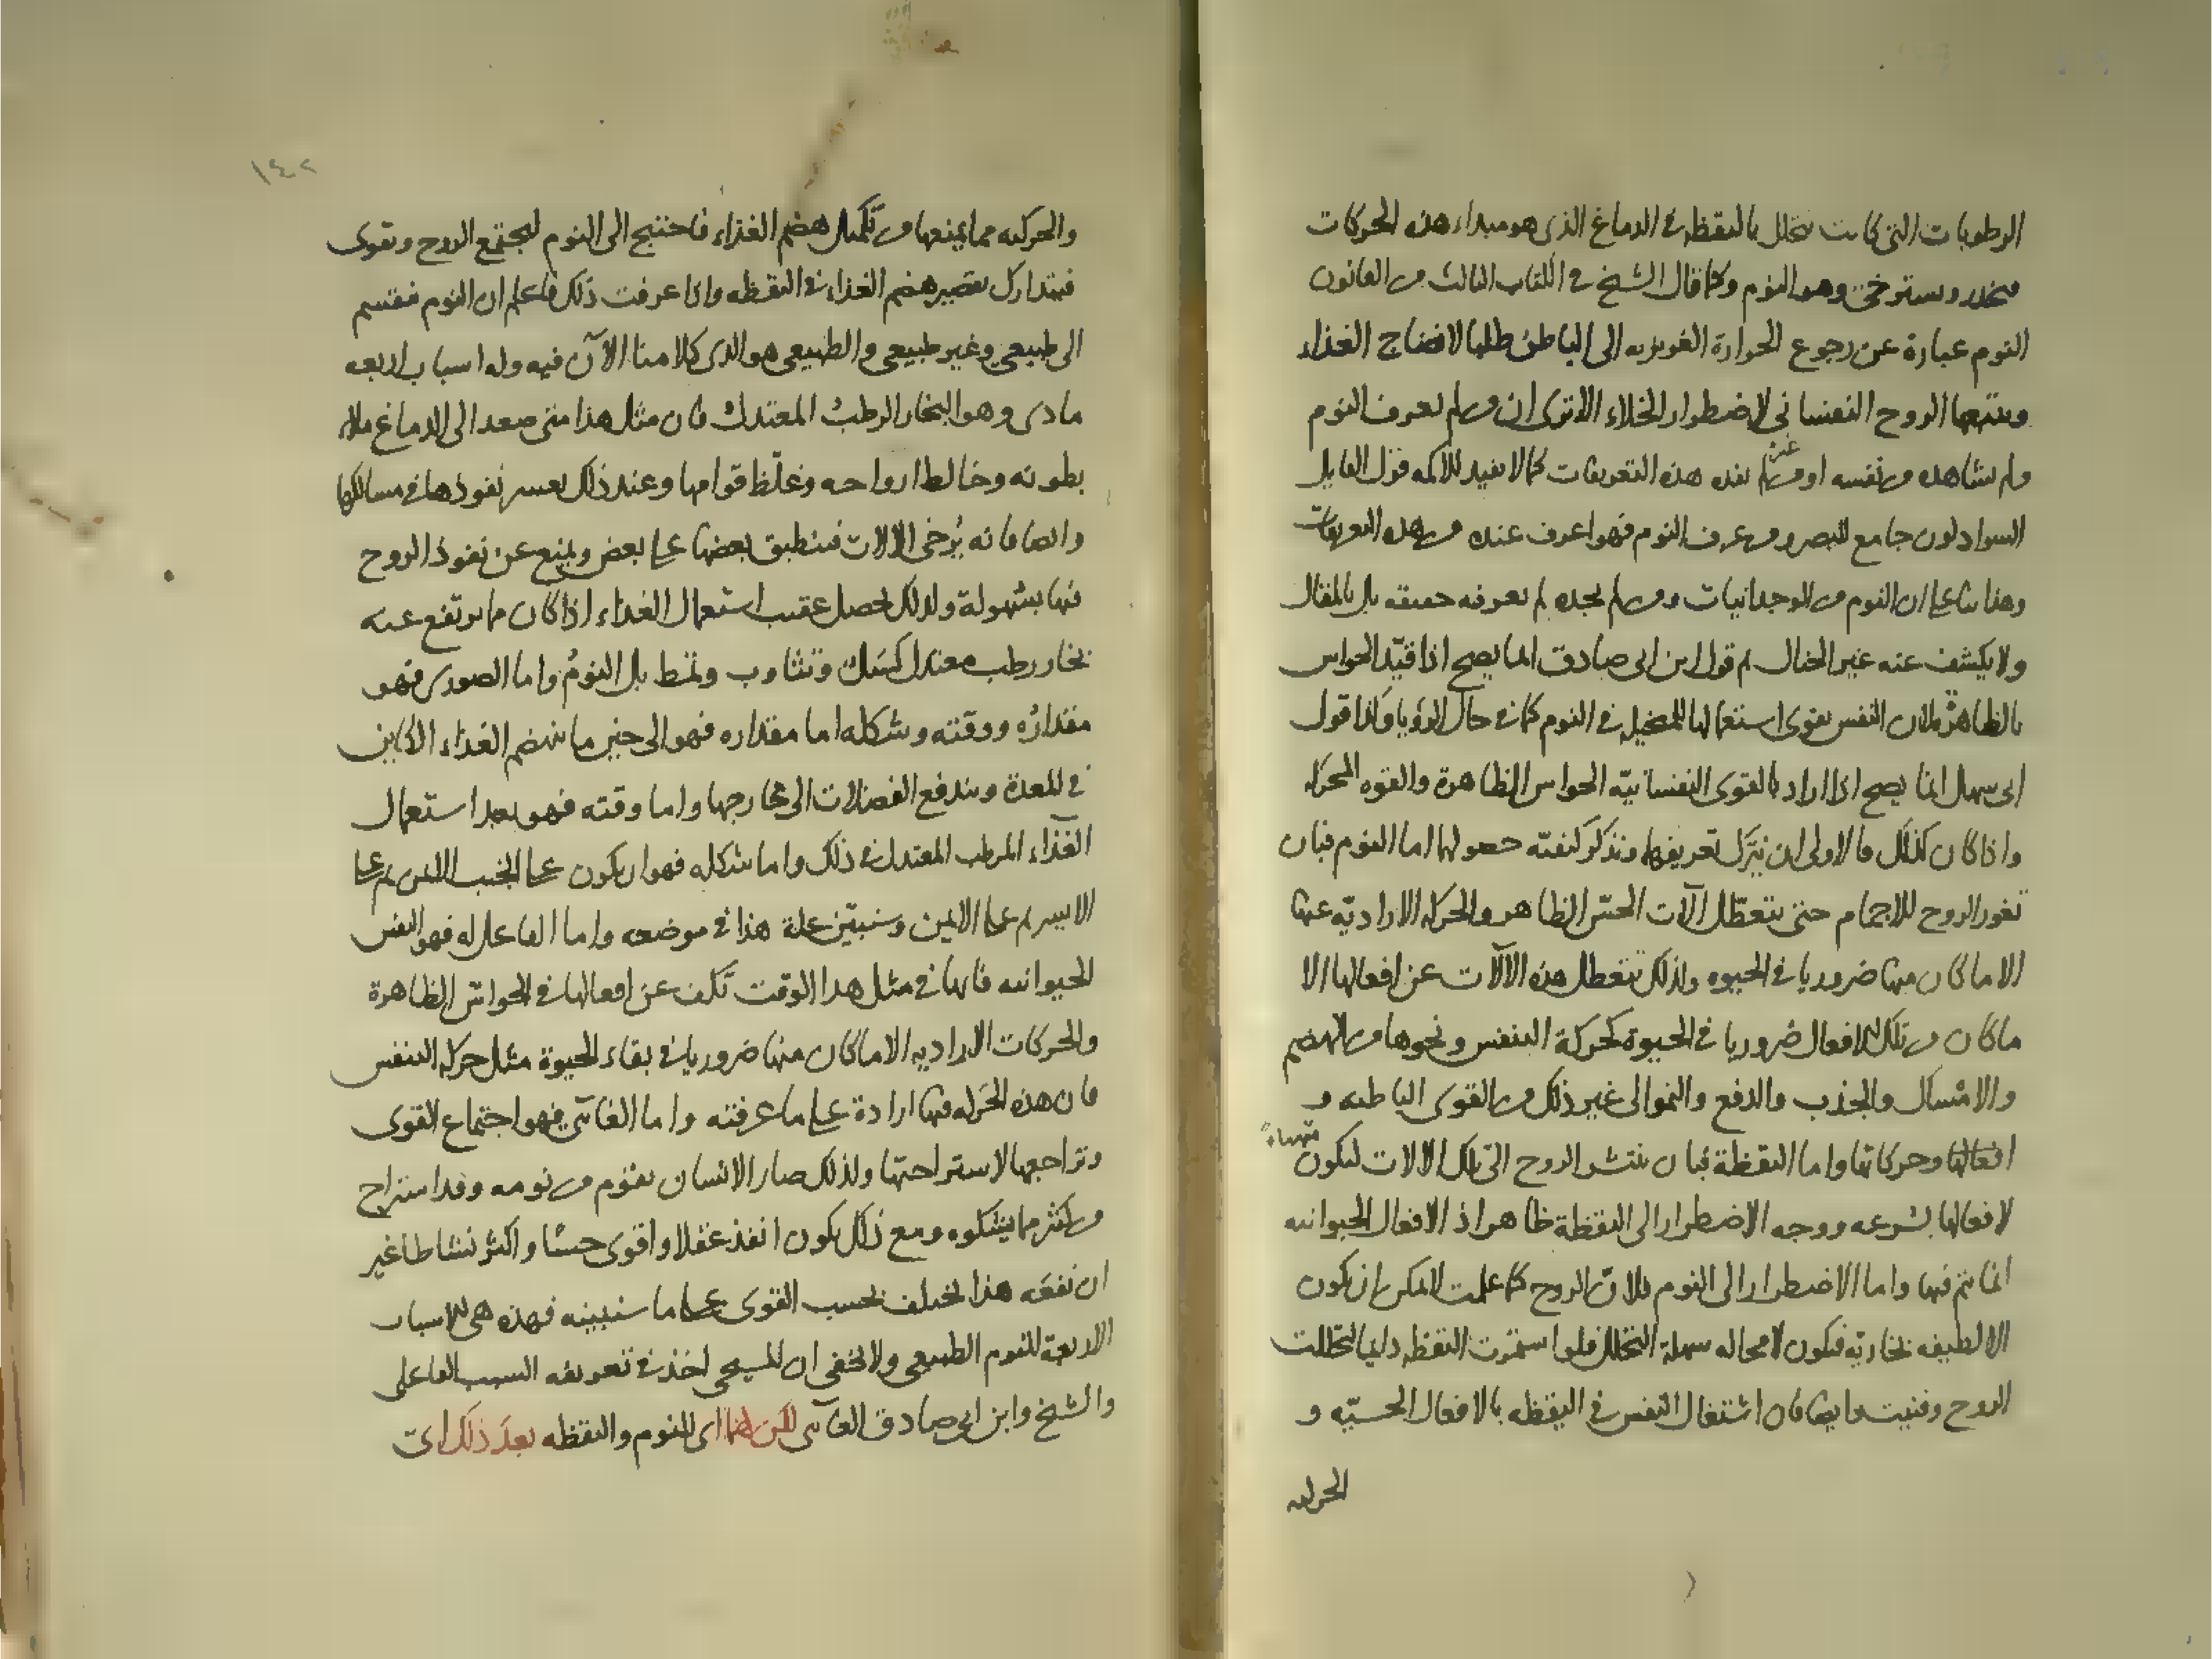 الرطوبات التى كانت تتحلل باليقظه فى الدماغ الذى هو مبداء هذه الحركات
فيخدر ويسترخى وهو النوم وكما قال الشيخ فى الكتاب الثالث من القانون
النوم عبارة عن رجوع الحرارة الغريزيه الى الباطن طلبا لانضاج الغذاء
ويتبعها الروح النفسانى لاضطرار الخلاء الا ترى ان من لم يعرف النوم
ولم يشاهده من نفسه او من غيره لم تفده هذه التعريفات كما لا يفيد للاكمه قول القايل
السواد لون جامع للبصر ومن عرف النوم فهو اعرف عنده من هذه التعريفات
وهذا بناء على ان النوم من الوجدانيات ومن لم يجده لم يعرفه حقيقه بل بالمقال
ولا يكشف عنه غير الخيال ثم قول ابن ابى صادق انما يصح اذا قيّد الحواس
بالظاهرة لان النفس يقوى استعمالها للمتخيله فى النوم كما فى حال الرؤيا وكذا قول
ابى سهل انما يصح اذا اراد بالقوى النفسانيّه الحواس الظاهرة والقوه المحركه
واذا كان كذلك فالاولى ان نترك تعريفها ونذكر كيفيّه حصولها اما النوم فبان
تغور الروح للاجمام حتى يتعطّل آلات الحسّ الظاهر والحركه الاراديّه عنها
الا ما كان منها ضروريا فى الحيوه ولذلك تتعطل هذه الآلات عن افعالها الا
ما كان من تلك الافعال ضروريا فى الحيوة كحركة التنفس ونحوها من الهضم
والامساك والجذب والدفع والنمو الى غير ذلك من القوى الباطنه و
افعالها وحركاتها واما اليقظة فبان ينتشر الروح الى تلك الالات ليكون متهيئاً
لافعالها بسرعه ووجه الاضطرار الى اليقظة ظاهر اذ الافعال الحيوانيه
انما يتم فيها واما الاضطرار الى النوم فلانّ الروح كما علمت لا يمكن ان يكون
الا لطيفه بخاريّه فيكون لا محاله سهلة التحلل فلو استمرت اليقظه دايما لتحللت
الروح وفنيت وايضا فان اشتغال النفس فى اليقظه بالافعال الحسيّه و
الحركيه
١٤٢
والحركيه مما يمنعها من تكميل هضم الغذاء فاحتيج الى النوم ليجتمع الروح وتقوى
فيتدارك تقصير هضم الغذاء فى اليقظه واذا عرفت ذلك فاعلم ان النوم ينقسم
الى طبيعى وغير طبيعى والطبيعى هو الذى كلامنا الآن فيه وله اسباب اربعه
مادى وهو البخار الرطب المعتدل فان مثل هذا متى صعد الى الدماغ ملاء
بطونه وخالط ارواحه وغلّظ قوامها وعند ذلك يعسر نفوذها فى مسالكها
وايضا فانه يُرخى الالات فينطبق بعضها على بعض ويمنع عن نفوذ الروح
فيها بسهولة ولذلك يحصل عقيب استعمال الغذاء اذا كان ما يرتفع عنه
بخار رطب معتدل كسل وتثاوب وتمط بل النومُ واما الصورى فهو
مقدارُه ووقته وشكله اما مقداره فهو الى حين ما ينهضم الغذاء الكاين
فى المعدة ويندفع الفضلات الى مخارجها واما وقته فهو بعد استعمال
الغذاء المرطب المعتدل فى ذلك واما شكله فهو ان يكون على الجنب الايمن ثم على
الايسر ثم على الايمن وسنبيّن علة هذا فى موضعه واما الفاعل له فهو النفس
الحيوانيه فانها فى مثل هذا الوقت تكف عن افعالها فى الحواس الظاهرة
والحركات الاراديه الا ما كان منها ضروريا فى بقاء الحيوة مثل حركه التنفس
فان هذه الحركه فيها ارادة على ما عرفته واما الغائىّ فهو اجتماع القوى
وتراجعها لاستراحتها ولذلك صار الانسان يقوم من نومه وقد استراح
من اكثر ما يشكوه ومع ذلك يكون انفذ عقلا واقوى حسّا واكثر نشاطا غير
ان نفعه هذا يختلف بحسب القوى على ما سنبينه فهذه هى الاسباب
الاربعة للنوم الطبيعى ولا يخفى ان المسيحى اخذ فى تعريفه السبب الفاعلى
والشيخ وابن ابى صادق الغائى لكن لهما اى للنوم واليقظه بعد ذلك اى